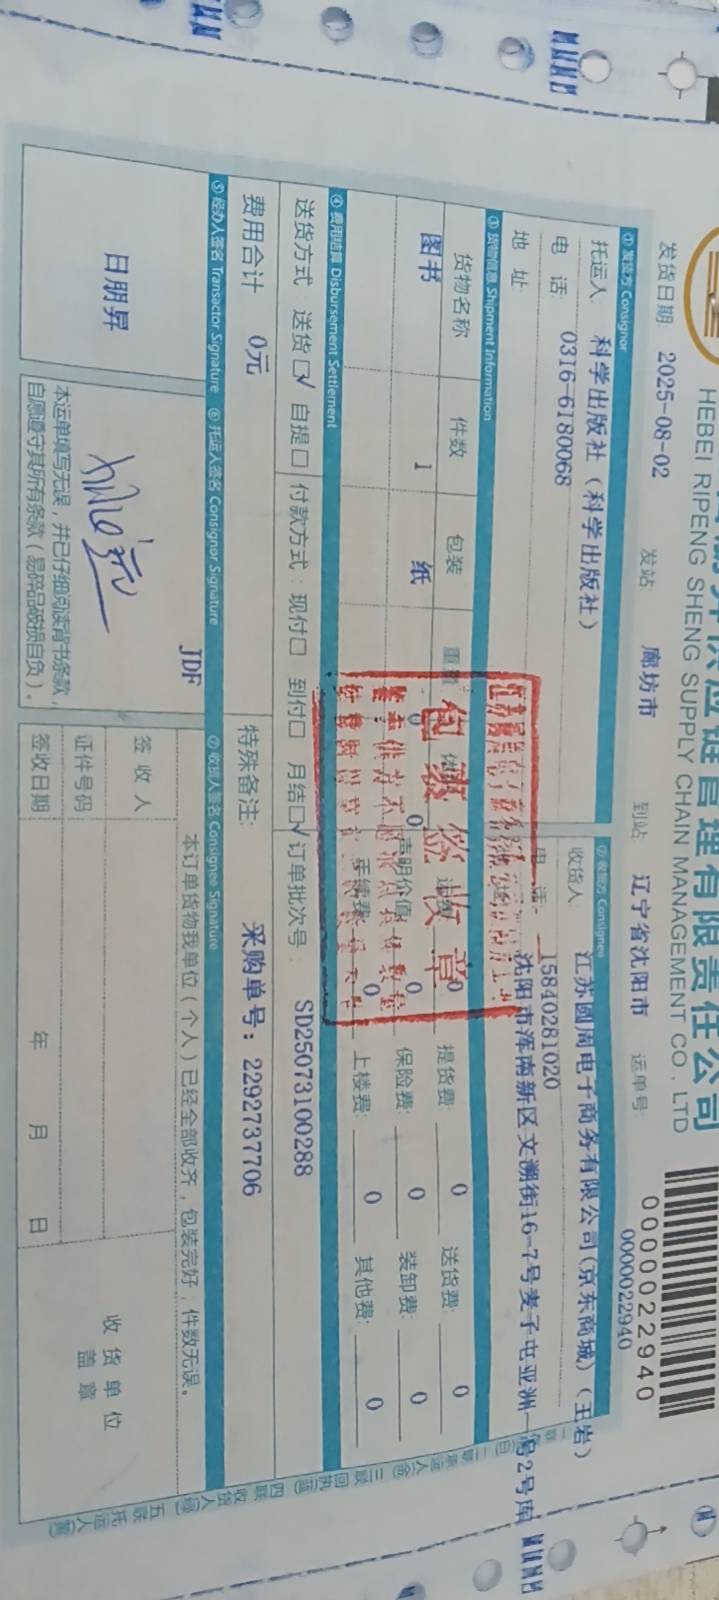 供应链管理有限责任公司
HEBEI RIPENG SHENG SUPPLY CHAIN MANAGEMENT CO., LTD
0000022940
发货日期 2025-08-02 发站 廊坊市 到站 辽宁省沈阳市 运单号 0000022940
① 发货方 Consignor ② 收货方 Consignee
托运人 科学出版社(科学出版社) 收货人 江苏圆周电子商务有限公司(京东商城)(王岩)
电 话: 0316-6180068 电 话: 15840281020
地 址 沈阳市浑南新区文溯街16-7号麦子屯亚洲一号2号库
③ 货物信息 Shipment Information
货物名称 件数 包装 重量 提货费: 0 送货费: 0
图书 1 纸 0 0 声明价值: 0 保险费: 0 装卸费: 0
手续费: 0 上楼费: 0 其他费: 0
包装签收章
④ 费用结算 Disbursement Settlement
送货方式: 送货☑ 自提☐ 付款方式: 现付☐ 到付☐ 月结☑ 订单批次号: SD25073100288
费用合计 0元 特殊备注: 采购单号: 2292737706
⑤ 经办人签名 Transactor Signature ⑥ 托运人签名 Consignor Signature ⑦ 收货人签名 Consignee Signature
日朋昇
JDF
本运单填写无误,并已仔细阅读背书条款,
自愿遵守其所有条款(易碎品破损自负)。
本订单货物我单位(个人)已经全部收齐,包装完好,件数无误。
签 收 人
证件号码
签收日期 年 月 日
收货单位
盖 章
二联承运人(金) 三联回执(蓝) 四联收货人(绿) 五联托运人(黄)